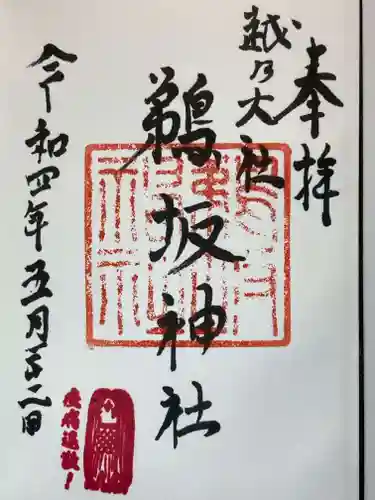 奉拝
越乃大社
鵜坂神社
令和四年五月三十二日
疫病退散!